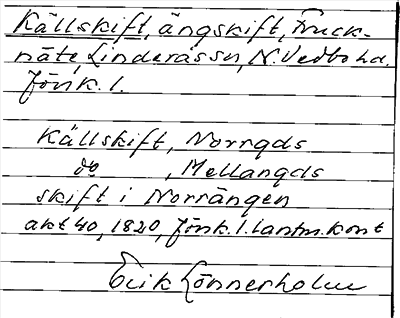 Källskift, ängskift, Fruck-
näte, Linderås sn, N. Vedbo hd.
Jönk. l.
Källskift, Norrgds
do , Mellangds
skift i Norrängen
akt 40, 1820, Jönk. l. lantm. kont
Erik Lönnerholm